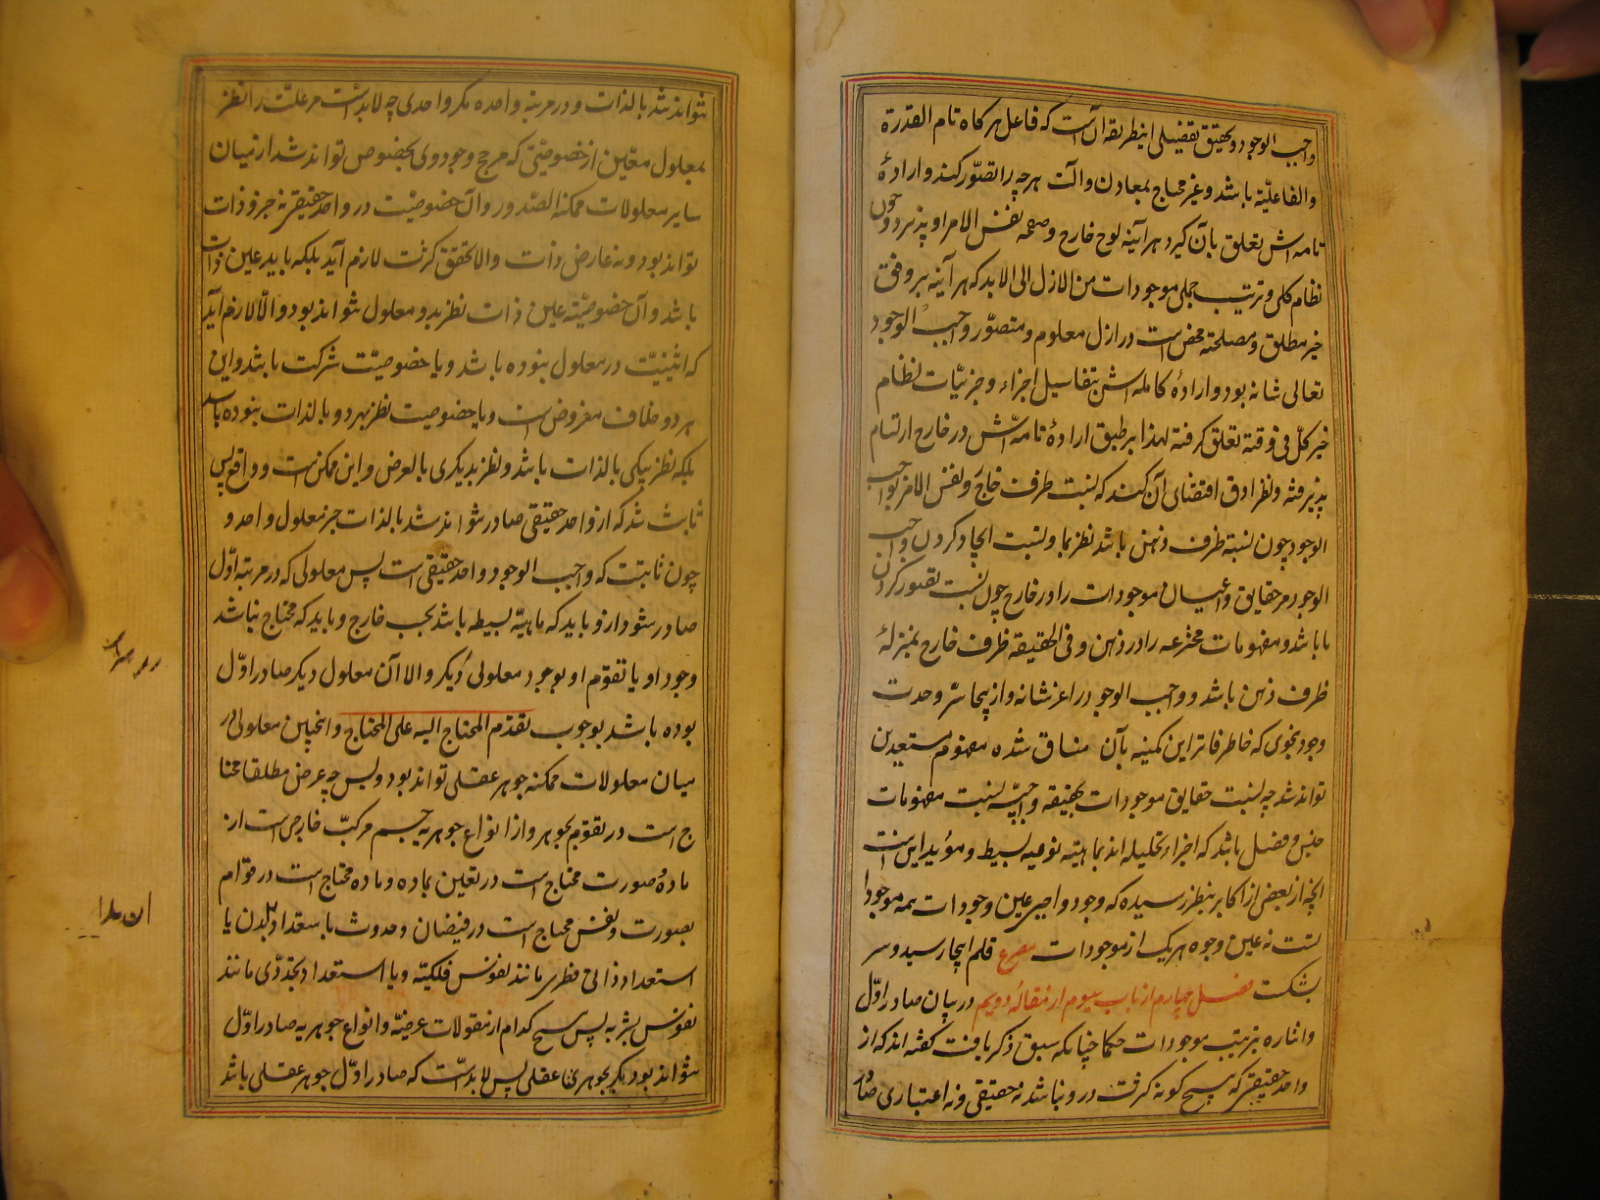 واجب الوجود و تحقیق تفصیلی اینطریقه آن است که فاعل هرکاه تام القدرة
والفاعلیّة باشد و غیر محتاج بمعادن و آلت هرچه را تصوّر کند و ارادهٔ
تامه‌اش تعلق بآن کیرد هر آینه لوح خارج و صحه نفس الامر او پذیرد و چون
نظام کلی و ترتیب جملی موجودات من الازل الی الابد که هر آینه بر وفق
خیر مطلق و مصلحته محض است در ازل معلوم و متصوّر واجب الوجود
تعالی شانه بود و ارادهٔ کامله‌اش بتفاسیل اجزاء و جزئیّات نظام
خیر کلّ فی وقته تعلق کرفته لهذا بر طبق ارادهٔ تامه‌اش در خارج ارتسام
پذیرفته و نظر ادق اقتضای آن کند که نسبت ظرف خارج و نفس الامر بواجب
الوجود چون نسبة ظرف ذهن باشد نظر بما و نسبت ایجاد کردن واجب
الوجود مر حقایق و اعیان موجودات را در خارج چون نسبت تصور کردن
ما باشد و مفهومات مخترعه را در ذهن و فی الحقیقه ظرف خارج بمنزلهٔ
ظرف ذهن باشد و واجب الوجود را عز شانه و از پنجا سرّ وحدت
وجود بنحوی که خاطر فاتر این کمینه بآن منساق شده مفهوم مستعدین
تواند شد چه نسبت حقایق موجودات بهیئیه واجبیّه نسبت مفهومات
جنس و فصل باشد که اجزاء تحلیله‌اند بماهیّته نوعیه بسیط و مؤید این است
آنچه از بعضی از اکابر بنظر رسیده که وجود واجبی عین وجودات همه موجودا
تست نه عین وجوه هریک از موجودات مصرع قلم اینجا رسید و سر
بشکست فصل چهارم از باب سیوم از مقالهٔ دویم در بیان صادر اوّل
و اشاره بترتیب موجودات حکما چنانکه سبق ذکر یافت کفته‌اند که از
واحد حقیقی که هیچ کونه کثرت درو نباشد نه حقیقی و نه اعتباری صادر
نتواند شد بالذات و در مرتبه واحده مکر واحدی چه لابد است مر علّت را نظر
بمعلول معیّن از خصوصیّتی که مرجح وجود وی بخصوص تواند شد از میان
سایر معلولات ممکنه الصدور و آن خصوصیّت در واحد حقیقی نه جزو ذات
تواند بود و نه عارض ذات و الا تحقق کثرت لازم آید بلکه باید عین ذات
باشد و آن خصوصیّته عین ذات نظر بدو معلول نتواند بود و الّا لازم آید
که اثنینیّت در معلول نبوده باشد و یا خصوصیّت شرکت باشد و این
هر دو خلاف مفروض است و یا خصوصیت نظر بهر دو بالذات نبوده باشد
بلکه نظر بیکی بالذات باشد و نظر بدیکری بالعرض و این ممکن است و واقع پس
ثابت شد که از واحد حقیقی صادر نتواند شد بالذات جز معلول واحد و
چون ثابتست که واجب الوجود واحد حقیقی است پس معلولی که در مرتبه اوّل
صادر شود ازو باید که ماهیّة بسیطه باشد بحسب خارج و باید که محتاج نباشد
وجود او یا تقوّم او بوجود معلولی دیکر و الا آن معلول دیکر صادر اوّل
بوده باشد بوجوب تقدّم المحتاج الیه علی المحتاج و اینچنین معلولی در
میان معلولات ممکنه جوهر عقلی تواند بود و بس چه عرض مطلقا محتا
ج است در تقوّم بجوهر و از انواع جوهریه جسم مرکبّ خارجی است از
ماده و صورت محتاج است در تعین بماده و ماده محتاج است در قوام
بصورت و نفس محتاج است در فیضان و حدوث باستعداد بدن یا
استعداد ذاتی فطری مانند نفوس فلکیّه و یا استعداد تجدّدی مانند
نفوس بشریه پس هیچ کدام از مقولات عرضیّه و انواع جوهریه صادر اوّل
نتواند بود مکر جوهری عقلی پس لابد است که صادر اوّل جوهر عقلی باشد